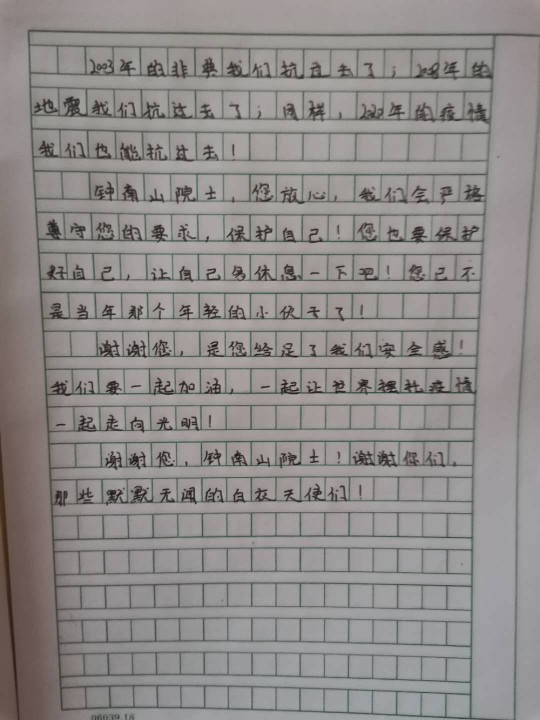 2003年的非典我们抗过去了；2008年的
地震我们抗过去了；同样，2020年的疫情
我们也能抗过去！
钟南山院士，您放心，我们会严格
尊守您的要求，保护自己！您也要保护
好自己，让自己多休息一下吧！您已不
是当年那个年轻的小伙子了！
谢谢您，是您给足了我们安全感！
我们要一起加油，一起让世界摆托疫情
一起走向光明！
谢谢您，钟南山院士！谢谢你们，
那些默默无闻的白衣天使们！
06039.18